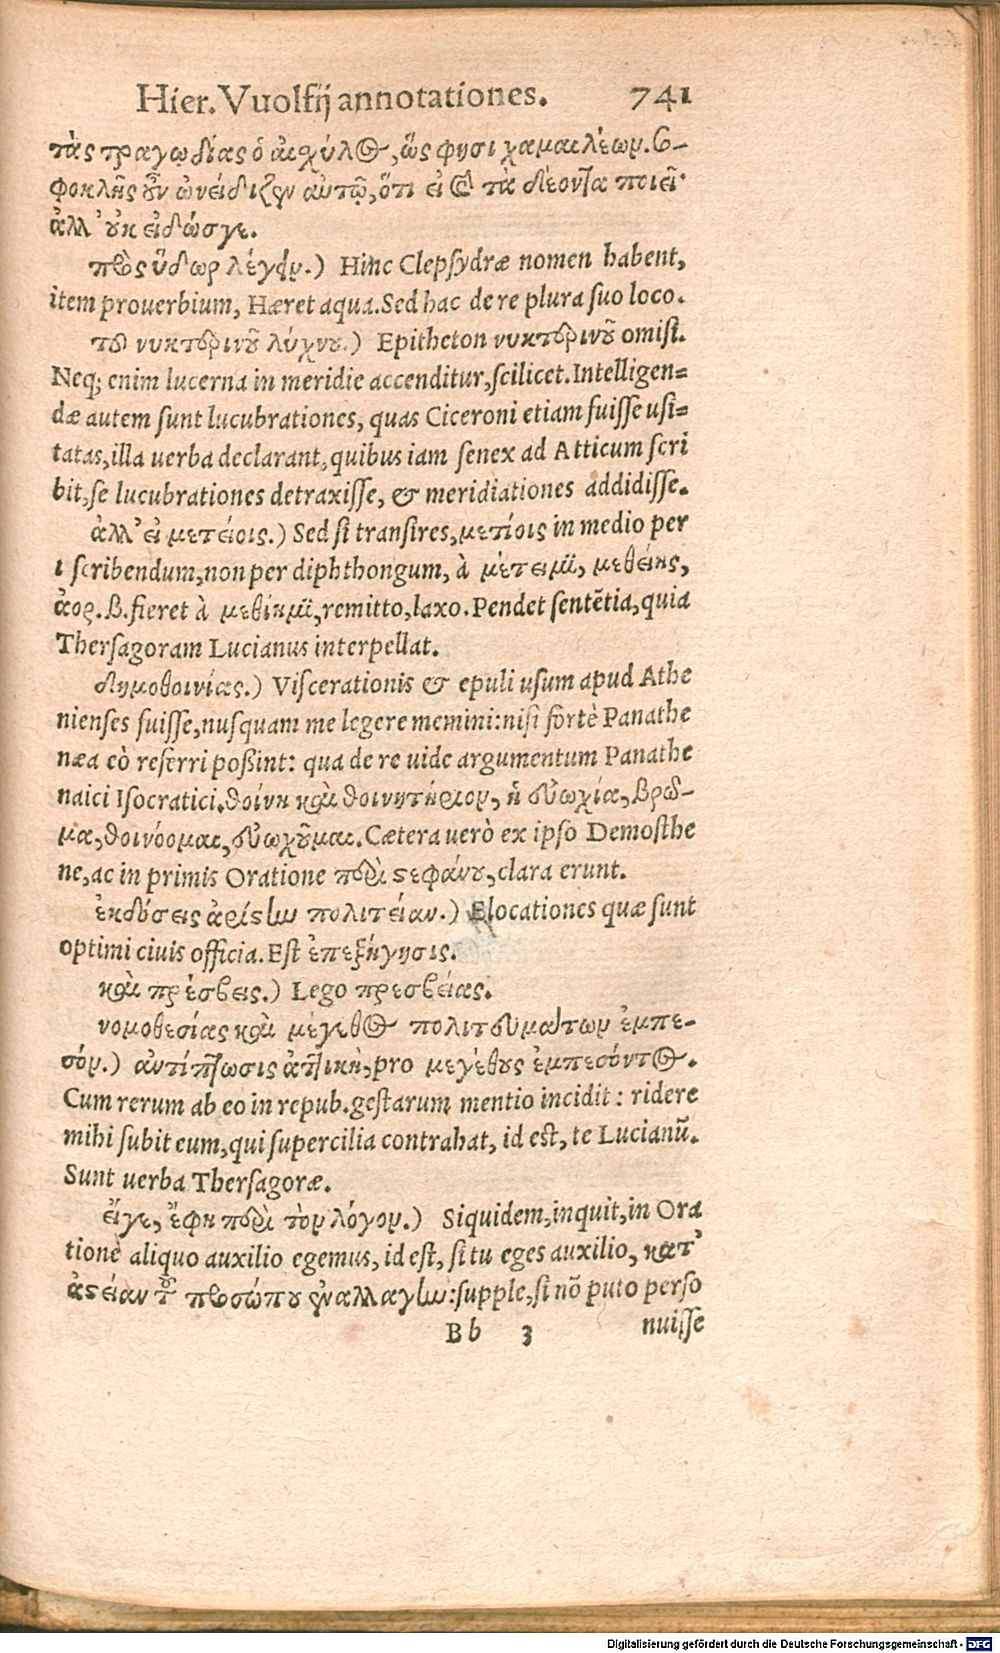 Hier. Vuolfij annotationes. 741
τὰς τραγῳδίας ὁ αἰσχύλος, ὥς φησι χαμαιλέων. σο-
φοκλῆς οὖν ὠνείδιζεν αὐτῷ, ὅτι εἰ καὶ τὰ δέοντα ποιεῖ·
ἀλλ' οὐκ εἰδώς γε.
πρὸς ὕδωρ λέγειν.) Hinc Clepsydræ nomen habent,
item prouerbium, Hæret aqua. Sed hac de re plura suo loco.
τοῦ νυκτερινοῦ λύχνου.) Epitheton νυκτερινοῦ omisi.
Neq; enim lucerna in meridie accenditur, scilicet. Intelligen=
dæ autem sunt lucubrationes, quas Ciceroni etiam fuisse usi=
tatas, illa uerba declarant, quibus iam senex ad Atticum scri
bit, se lucubrationes detraxisse, & meridiationes addidisse.
ἀλλ' εἰ μετείοις.) Sed si transires, μετίοις in medio per
ι scribendum, non per diphthongum, à μέτειμϊ, μεθείης,
ἀορ. β. fieret à μεθίημϊ, remitto, laxo. Pendet sentētia, quia
Thersagoram Lucianus interpellat.
δημοθοινίας.) Viscerationis & epuli usum apud Athe
nienses fuisse, nusquam me legere memini: nisi fortè Panathe
næa eò referri possint: qua de re uide argumentum Panathe
naici Isocratici. θοίνη καὶ θοινητήριον, ἡ εὐωχία, βρῶ-
μα, θοινόομαι, εὐωχοῦμαι. Cætera uerò ex ipso Demosthe
ne, ac in primis Oratione περὶ στεφάνου, clara erunt.
ἐκδόσεις ἀρίστων πολιτείαν.) Elocationes quæ sunt
optimi ciuis officia. Est ἐπεξήγησις.
καὶ πρέσβεις.) Lego πρεσβείας.
νομοθεσίας καὶ μέγεθος πολιτευμάτων ἐμπε-
σόν.) ἀντίπτωσις ἀττικὴ, pro μεγέθους ἐμπεσόντος.
Cum rerum ab eo in repub. gestarum mentio incidit: ridere
mihi subit eum, qui supercilia contrahat, id est, te Lucianū.
Sunt uerba Thersagoræ.
εἴγε, ἔφη περὶ τὸν λόγον.) Siquidem, inquit, in Ora
tione aliquo auxilio egemus, id est, si tu eges auxilio, κατ'
ἀστείαν τοῦ προσώπου ἐναλλαγὴν: supple, si nō puto perso
Bb 3 nuisse
Digitalisierung gefördert durch die Deutsche Forschungsgemeinschaft - DFG